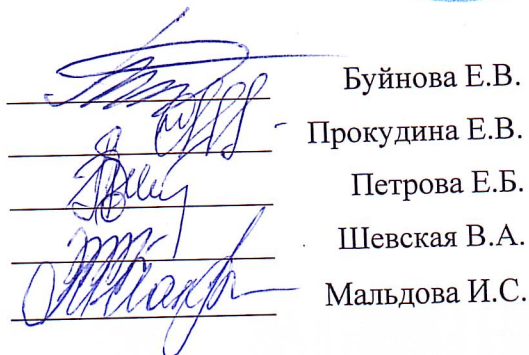 Буйнова Е.В.
Прокудина Е.В.
Петрова Е.Б.
Шевская В.А.
Мальдова И.С.